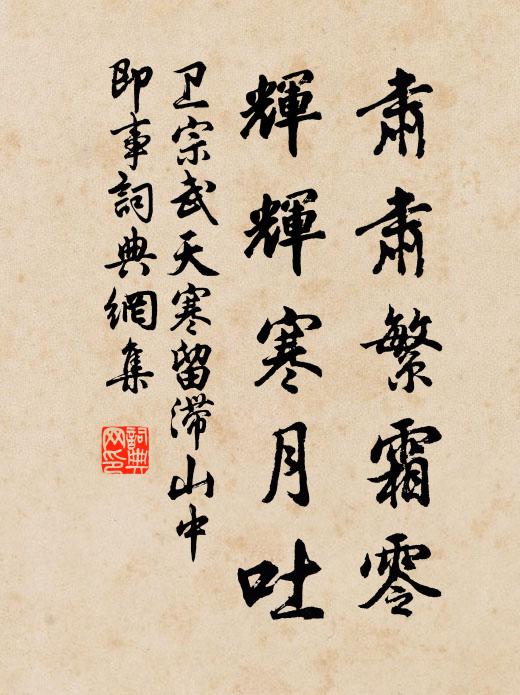 肅肅繁霜零
輝輝寒月吐
卫宗武天寒留滯山中
即事詞典網集
詞典
网印